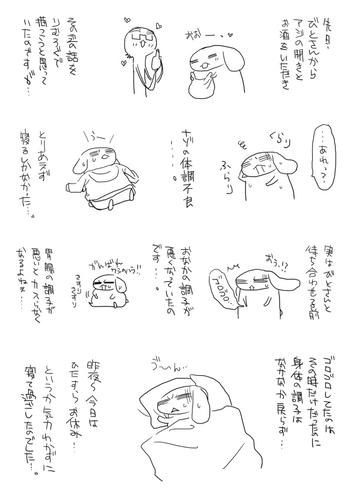 先日
びとさんから
アジの開きと
お酒をいただき
おおーー、
その恋の話を
りむろぐで
描こうと思って
いたのですが…
…あれっ?
くらり
ふらり
ナゾの体調不良
うー
とりあえず
寝るしかなかった…。
実はびとさんと
待ち合わせる前
おぅっ!?
ゴロゴロ
おなかの調子が
悪くなっていたの
です…。
がんばれ
さすり
さすり
胃腸の調子が
悪いとカスらなく
なるよねぇ…
ゴロゴロしてたのは
その時だけだったのに
身体の調子は
なかなか戻らず…
う〜ん…
昨夜〜今日は
ひたすらお休み…
というか気力わかずに
寝て過ごしたのでした…。